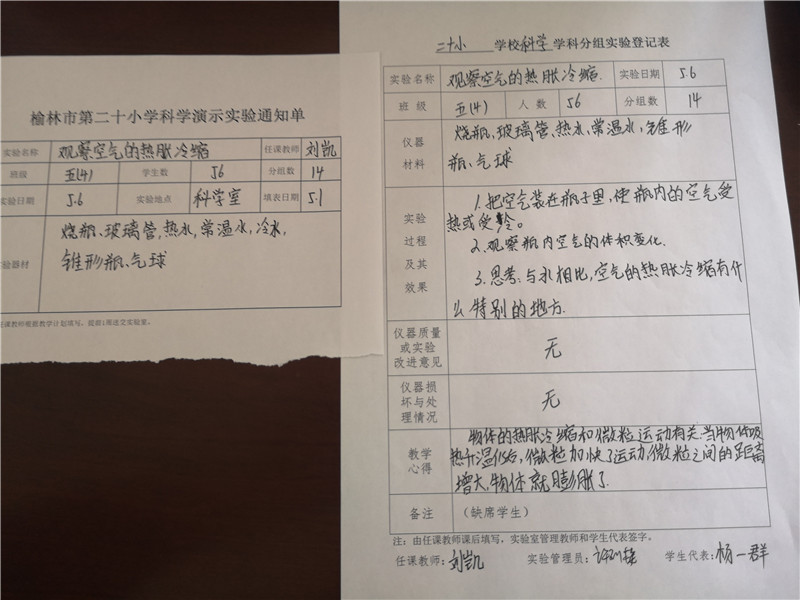 榆林市第二十小学科学演示实验通知单
实验名称 观察空气的热胀冷缩 任课教师 刘凯
班级 五(4) 学生数 56 分组数 14
实验日期 5.6 实验地点 科学室 填表日期 5.1
实验器材 烧瓶、玻璃管,热水,常温水,冷水,
锥形瓶、气球
任课教师根据教学计划填写,提前1周送交实验室。
二十小 学校科学学科分组实验登记表
实验名称 观察空气的热胀冷缩. 实验日期 5.6
班级 五(4) 人数 56 分组数 14
仪器材料 烧瓶,玻璃管、热水,常温水,锥形
瓶、气球
实验过程及其效果 1.把空气装在瓶子里,使瓶内的空气受
热或受冷.
2.观察瓶内空气的体积变化.
3.思考:与水相比,空气的热胀冷缩有什
么特别的地方.
仪器质量或实验改进意见 无
仪器损坏与处理情况 无
教学心得 物体的热胀冷缩和微粒运动有关.当物体吸
热升温以后,微粒加快了运动,微粒之间的距离
增大,物体就膨胀了.
备注 (缺席学生)
注:由任课教师课后填写,实验室管理教师和学生代表签字。
任课教师:刘凯 实验管理员: 学生代表:杨一群